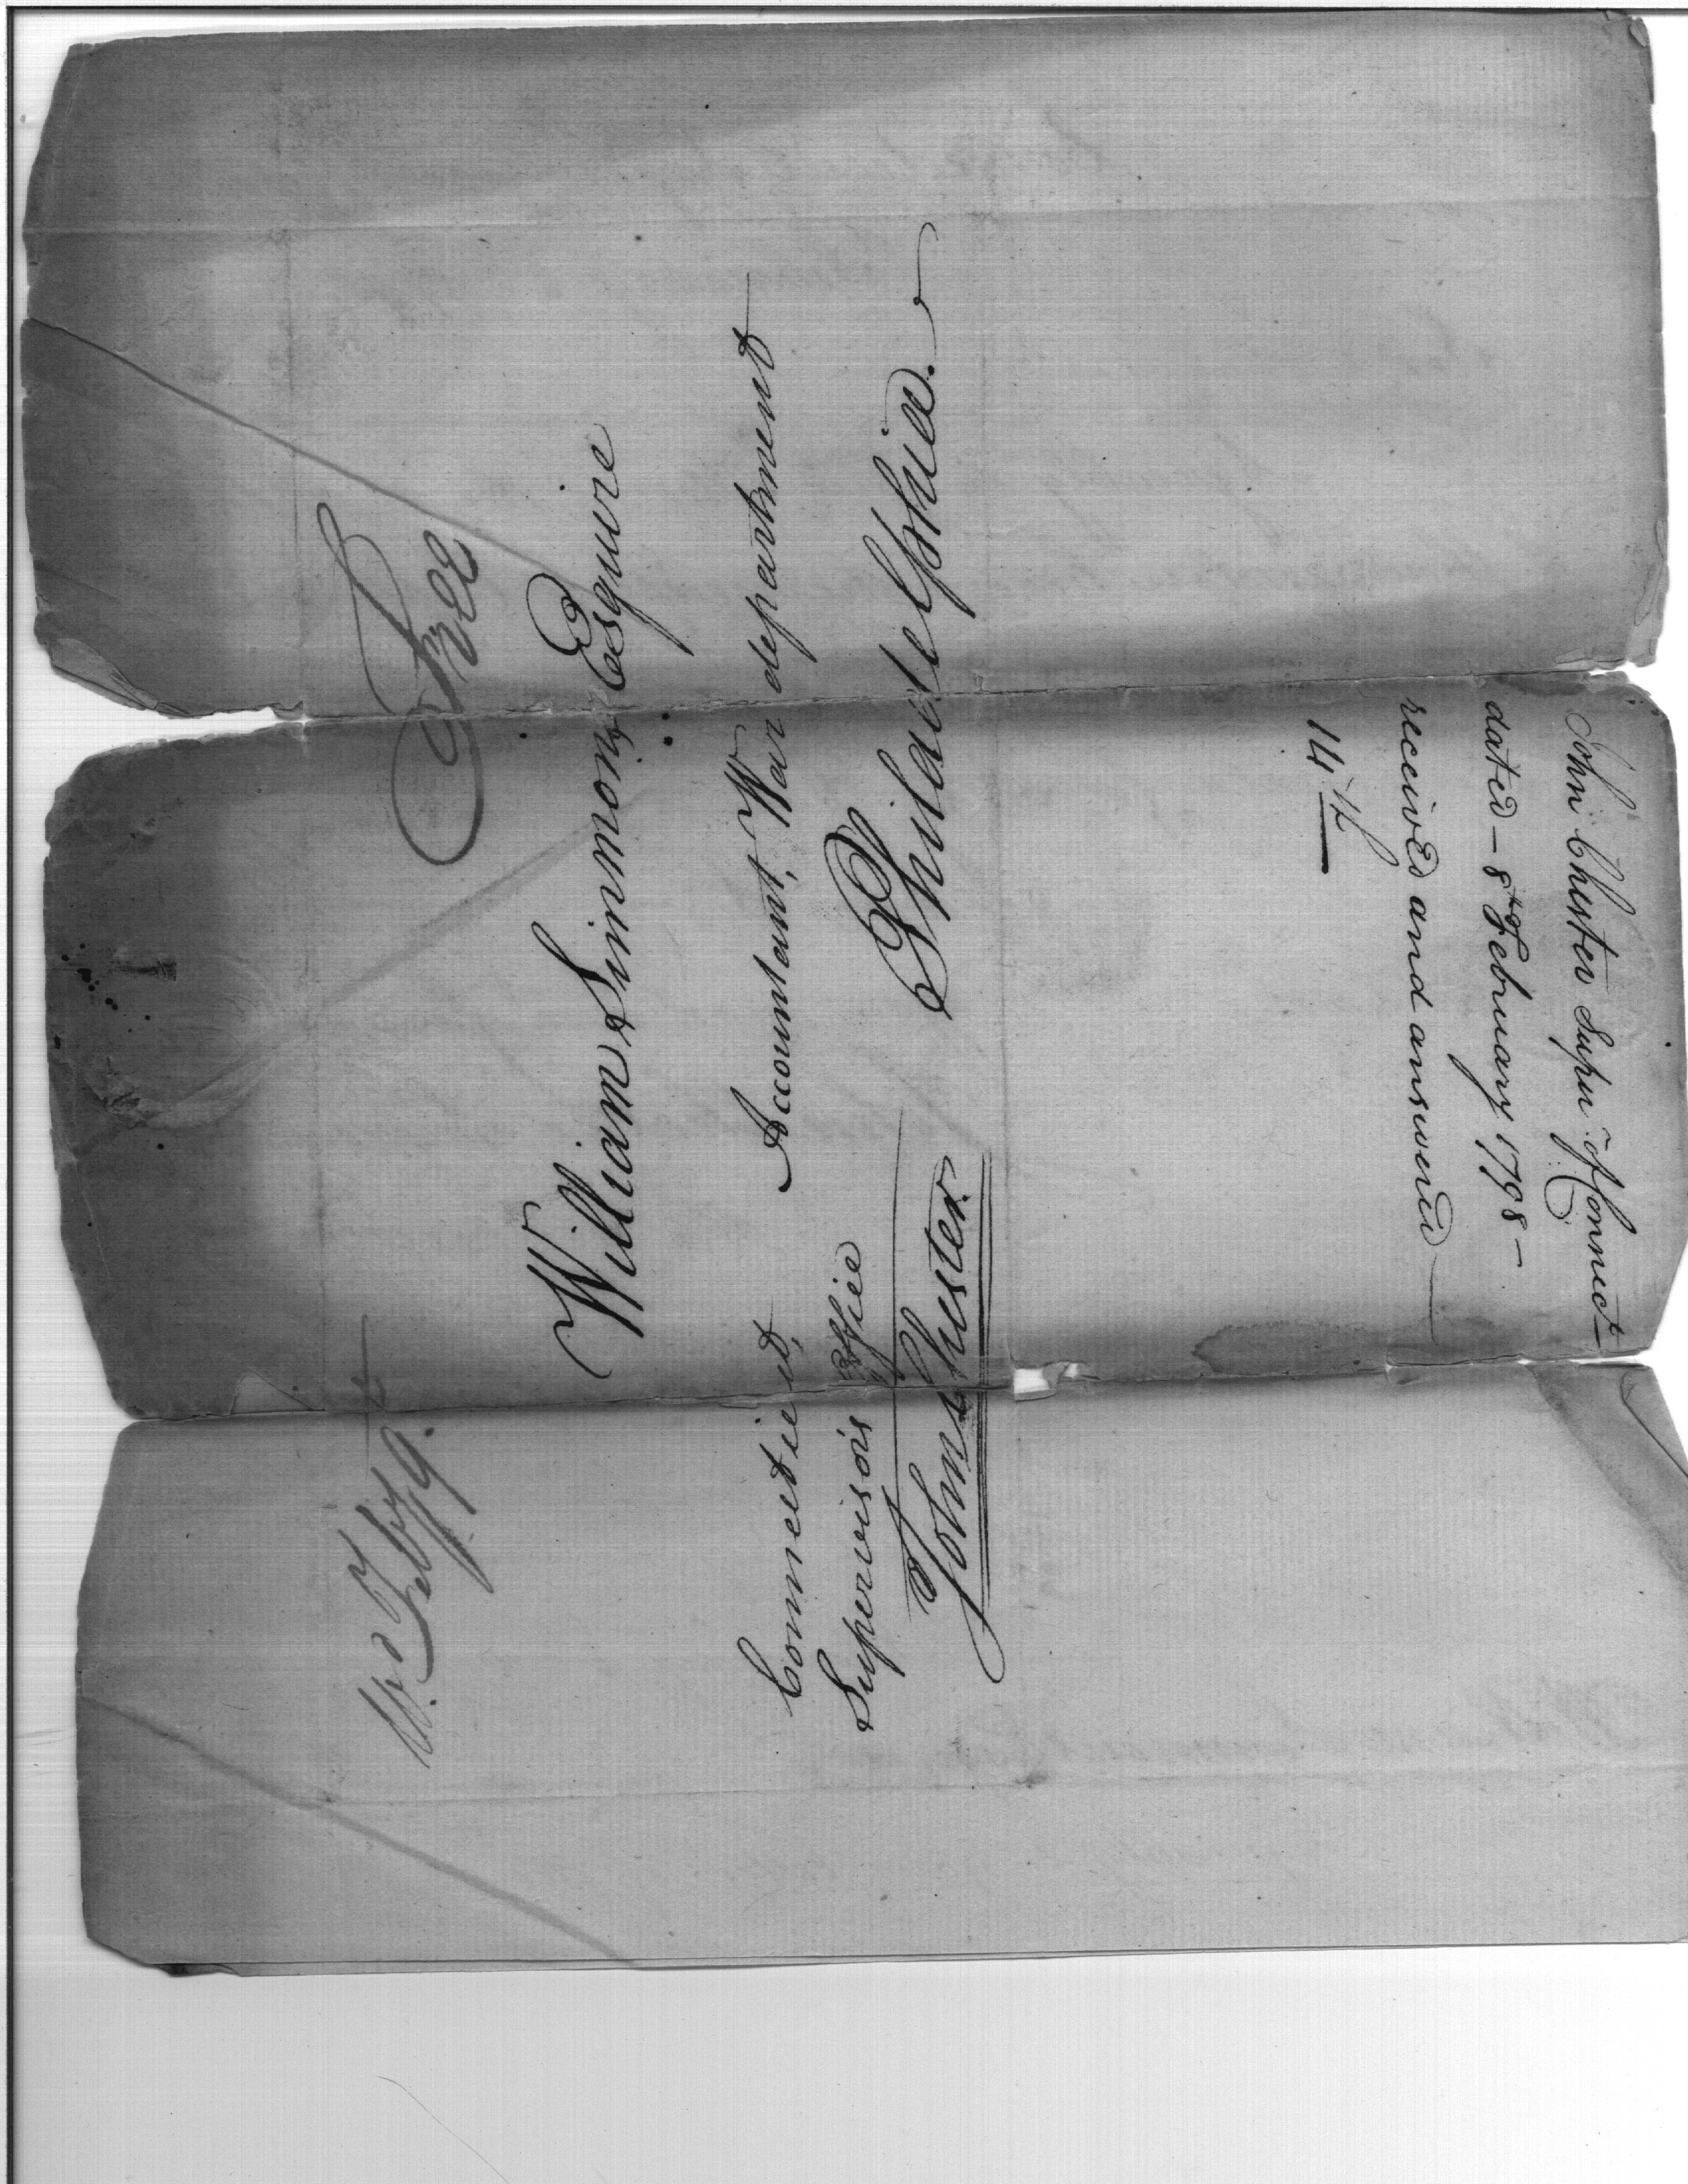 Free
Feby 9.
William Simmons, Esquire
Accountant, War department
Philadelphia.
Connecticut,
Supervisors Office
John Chester.
John Chester Super. of Connect
dated – 8th February 1798 –
received and answered
14th